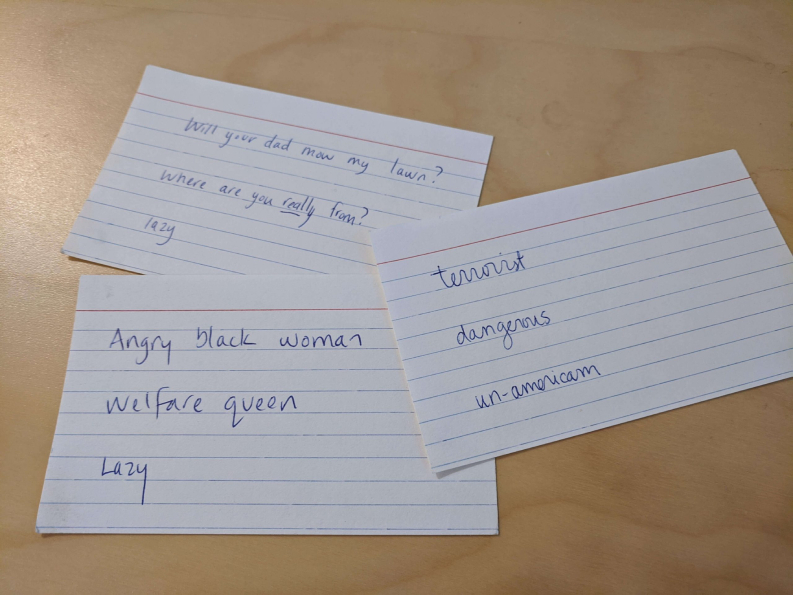 Will your dad mow my lawn?
Where are you really from?
lazy
terrorist
dangerous
un-american
Angry black woman
Welfare queen
Lazy